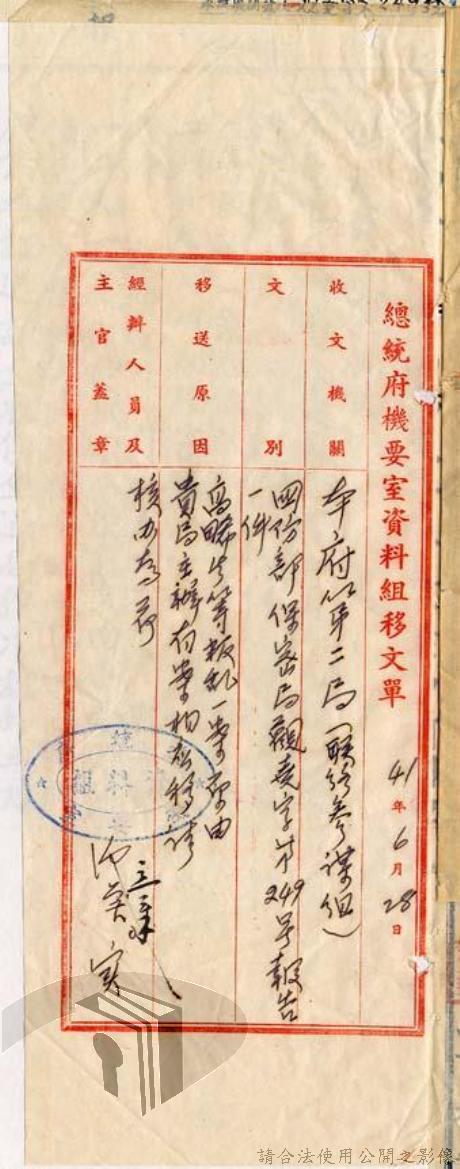 總統府機要室資料組移文單
41年6月28日
收文機關
本府第二局(聯絡參謀組)
文別
國防部保密局觀堯字第249号報告
一件
移送原因
高晞生等叛乱一案原由
貴局主辦有案相應移請
核办為荷
經辦人員及
主官蓋章
料組
請合法使用公開之影像